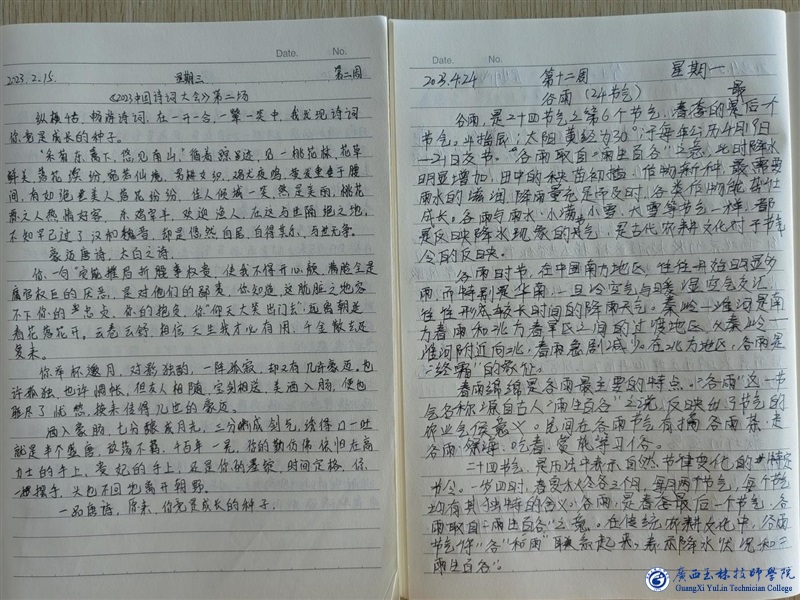 Date. No.
2023.2.15. 星期三 第二周
《2023中国诗词大会》第二场
纵横古 畅游诗词,在一开一合,一颦一笑中,我发现诗词
你竟是成长的种子。
"采菊东篱下,悠见南山,"循着踪迹,见一桃花林,花草
鲜美 落花缤纷,宛若仙境。
间,有如绝世美人落花纷纷,佳人倾城一笑,然是美丽,桃花
源之人热情好客,杀鸡宰羊,欢迎渔人,在这与世隔绝之地,
不知早已过了汉和魏晋,却是怡然自居,自得其乐,与世无争。
豪迈唐诗,太白之诗。
你,一句"安能摧眉折腰事权贵,使我不得开心颜,满腔全是
腐朽权臣的厌恶,是对他们的鄙夷,你知道,这肮脏之地容
不下你的才,你的抱负,你"仰天大笑出门去",远离朝廷
看花落花开,云卷云舒,相信天生我才必有用,千金散去还
复来。
你举杯邀月,对影独酌,一阵孤寂,却又有几许豪迈,也
许孤独,也许惆怅,但友人相随,宝剑相送,美酒入肠,便也
能尽了忧愁,换来任得几世的豪迈。
酒入豪肠,七分酿成月光,三分啸成剑气,绣得口一吐
就是半个盛唐,放荡不羁,千百年一晃,你的勤仿佛依旧在高
力士的手上,贵妃的手上,还是你的潇洒,时间定格,你,
一挥手,头也不回地离开朝野。
一品唐诗,原来,你竟是成长的种子.
Date. No.
2023.4.24 第十二周 星期一
谷雨(24节气)
谷雨,是二十四节气之第6个节气,春季的最后一个
节气。斗指辰;太阳黄经为30°;于每年公历4月19日
—21日交节。"谷雨取自"雨生百谷"之意,此时降水
明显增加,田中的秧苗初插、作物新种,最需要
雨水的滋润,降雨量充足而及时,谷类作物能茁壮
成长。谷雨与雨水、小满、小雪、大雪等节气一样,都
是反映降水现象的节气,是古代农耕文化对于节
令的反映。
谷雨时节,在中国南方地区,往往开始明显多
雨,而特别是华南,一旦冷空气与暖湿空气交汇,
往往形成较长时间的降雨天气。秦岭—淮河是南
方春雨和北方春旱区之间的过渡地区,从秦岭—
淮河附近向北,春雨急剧减少。在北方地区,谷雨是
"终霜"的象征。
春雨绵绵是谷雨最主要的特点。"谷雨"这一节
令名称源自古人"雨生百谷"之说,反映出了节气的
农业气候意义。民间在谷雨节有摘谷雨茶、走
谷雨、祭海、吃香、赏花等习俗。
二十四节气,是历法中表示自然节律变化的特定
节令。一岁四时,春夏秋冬各三个月,每月两个节气,每个节气
均有其独特的含义。谷雨,是春季最后一个节气,谷
雨取自"雨生百谷"之意。在传统农耕文化中,谷雨
节气将"谷"和"雨"联系起来,表示降水状况和
"雨生百谷"。
广西玉林技师学院
GuangXi YuLin Technician College